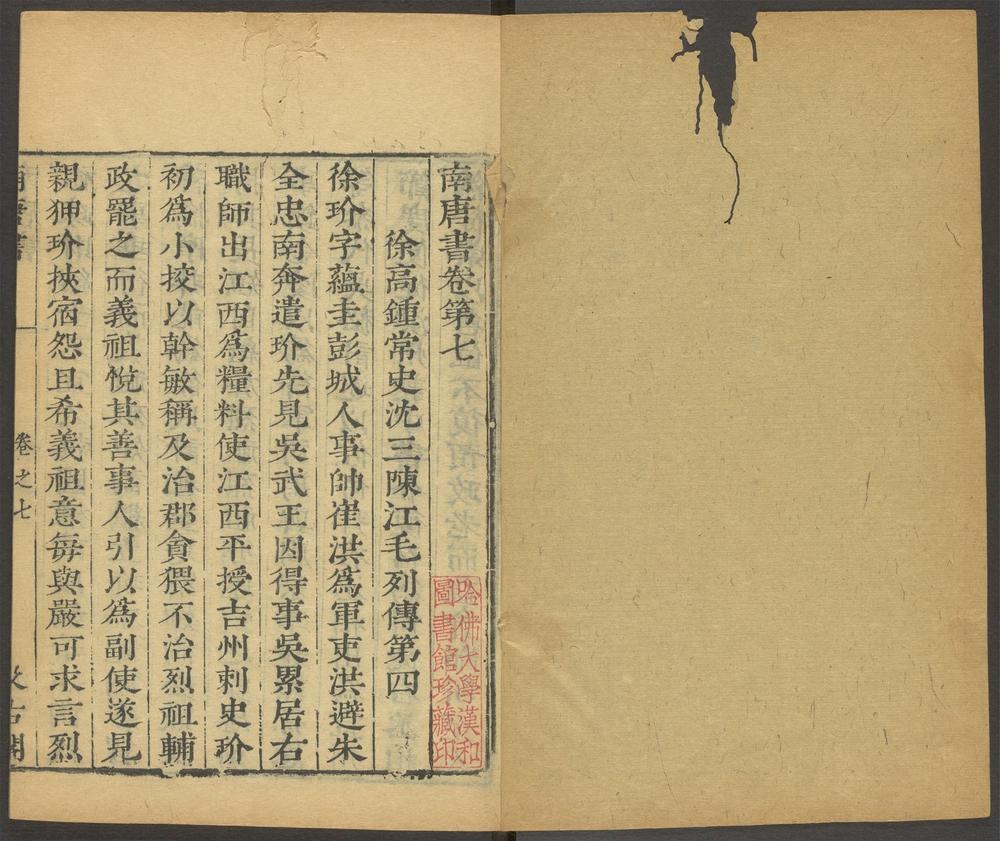 南唐書卷第七
徐高鍾常史沈三陳江毛列傳第四
徐玠字蘊圭彭城人事帥崔洪爲軍吏洪避朱
全忠南奔遣玠先見吳武王因得事吳累居右
職師出江西爲糧料使江西平授吉州刺史玠
初爲小挍以幹敏稱及治郡貪猥不治烈祖輔
政罷之而義祖悅其善事人引以爲副使遂見
親狎玠挾宿怨且希義祖意每與嚴可求言烈
南唐書
卷之七
汲古閣
哈佛大學漢和
圖書館珍藏印